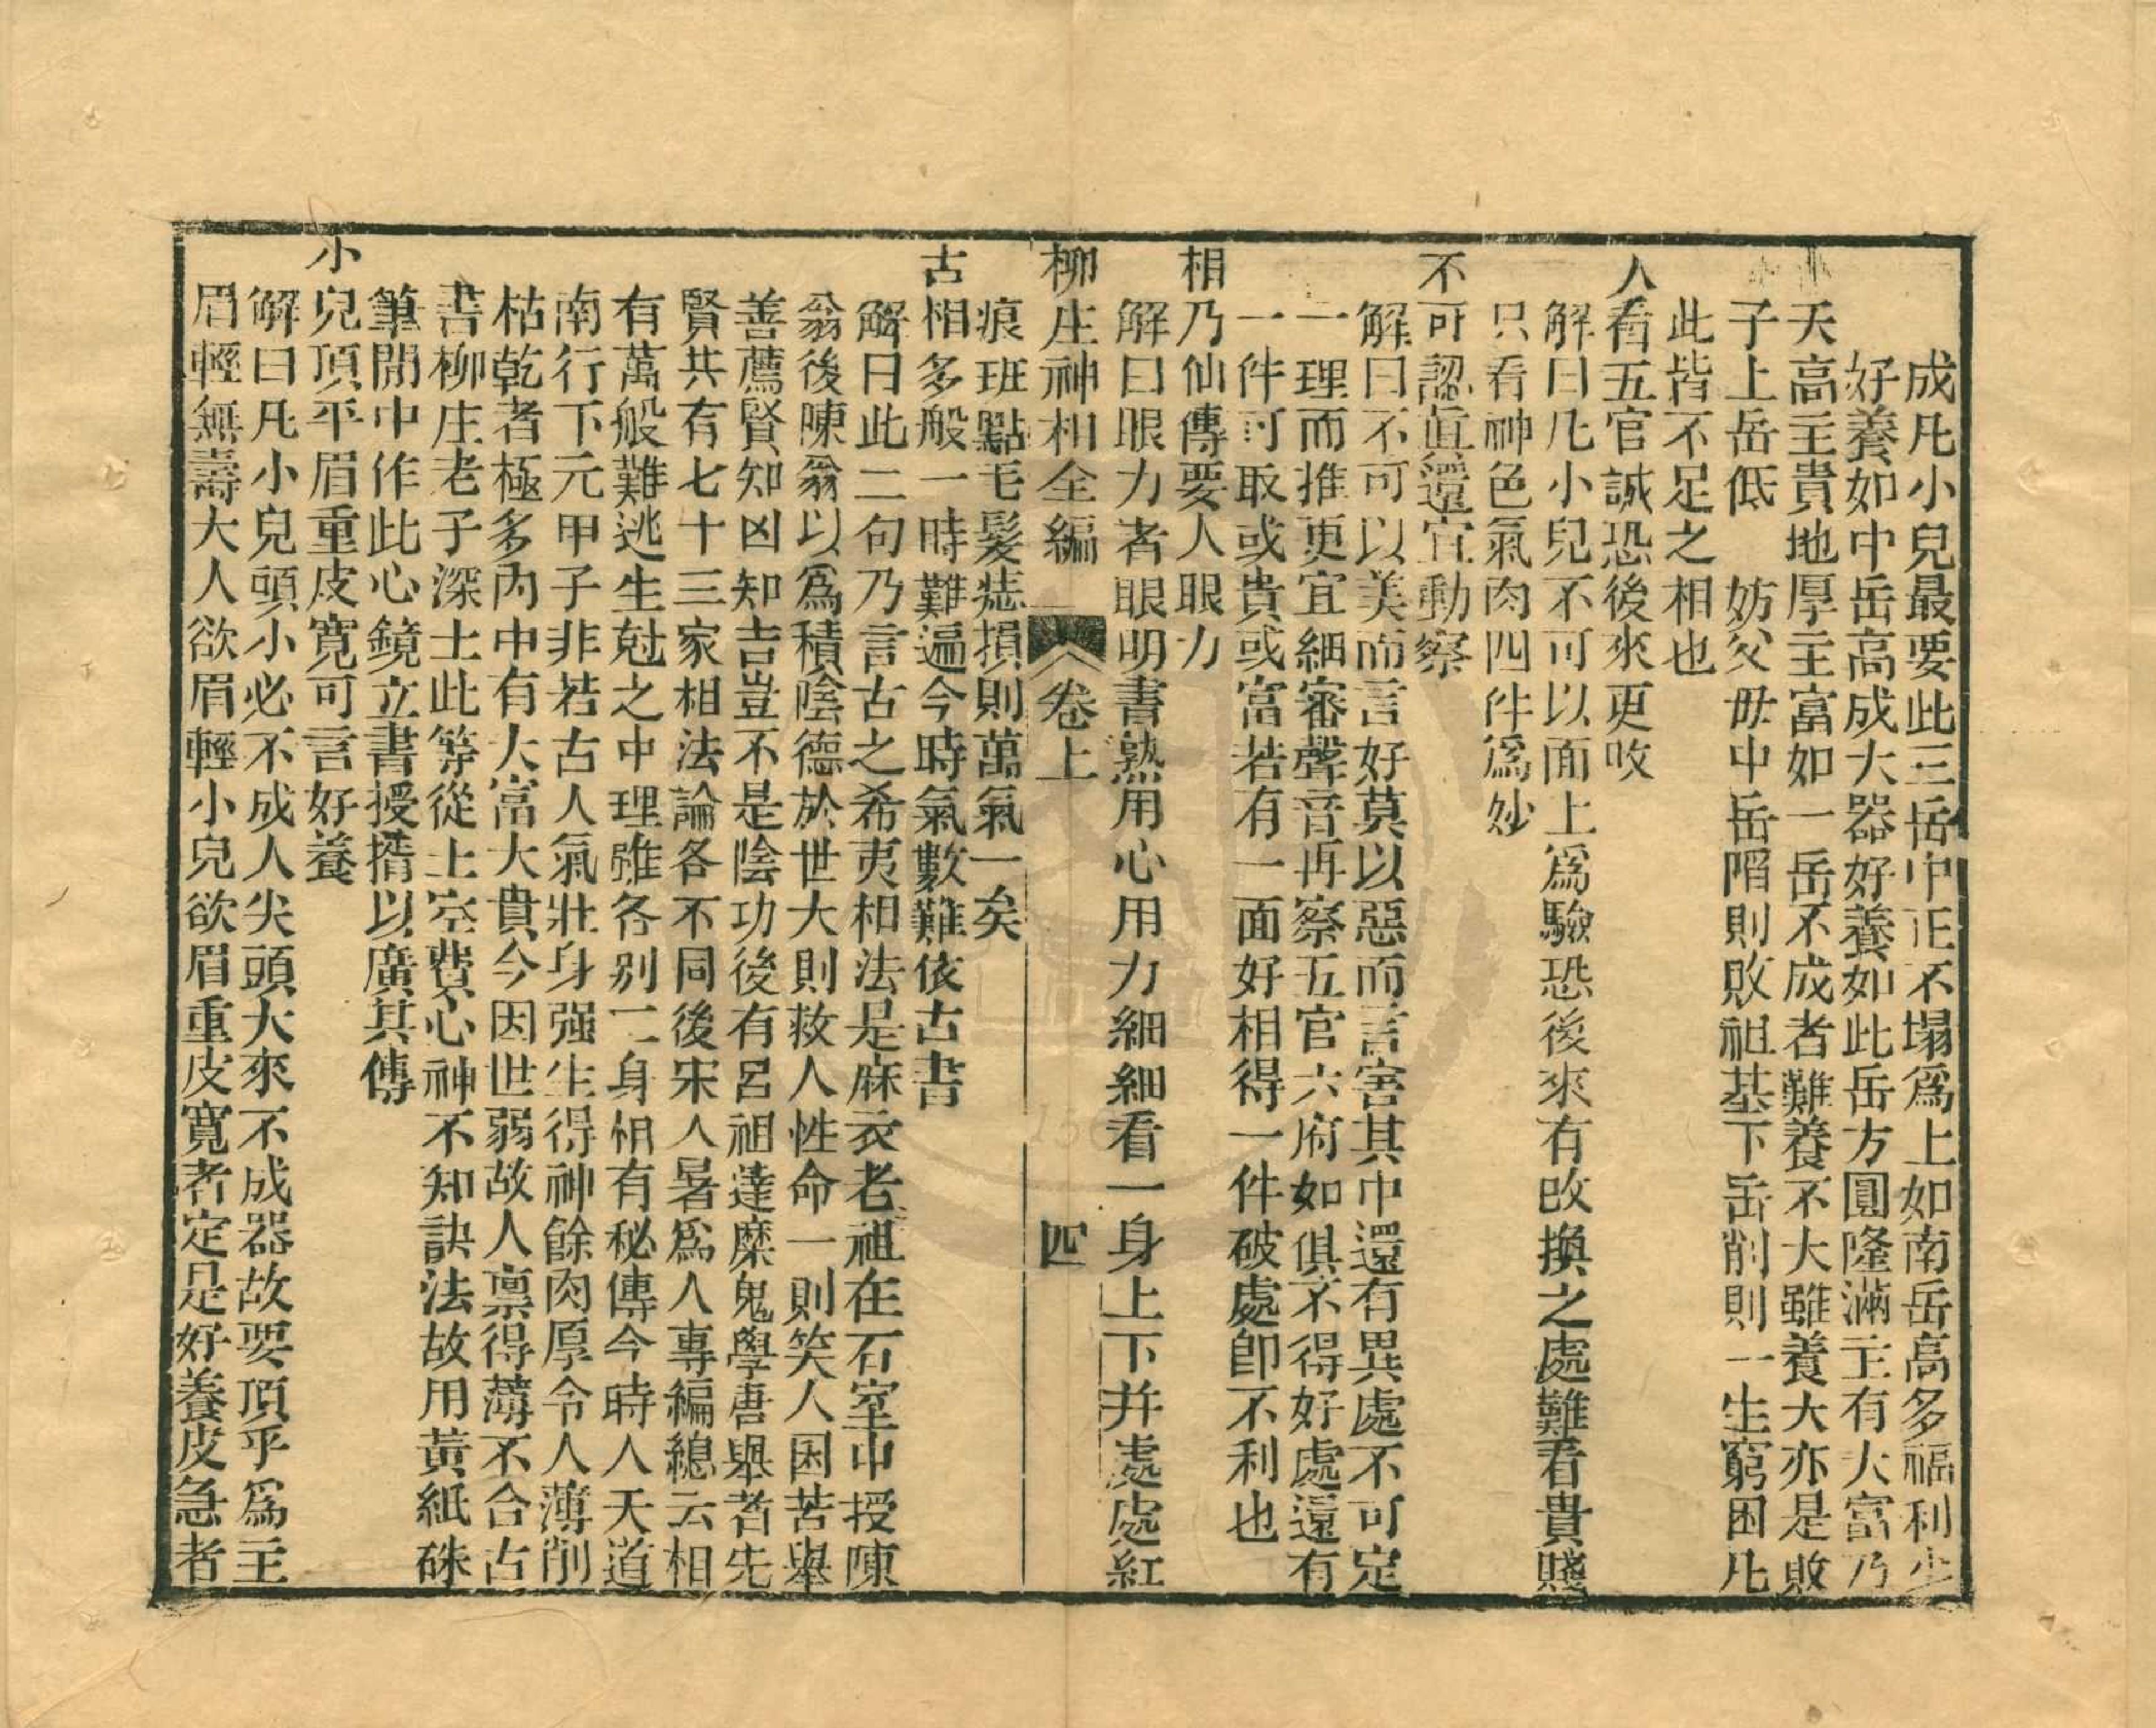 成凡小兒最要此三岳中正不塌爲上如南岳高多福利少
好養如中岳高成大器好養如此岳方圓隆滿主有大富乃
天高主貴地厚主富如一岳不成者難養不大雖養大亦是敗
子上岳低 妨父母中岳陷則敗祖基下岳削則一生窮困凡
此皆不足之相也
人看五官誠恐後來更改
解曰凡小兒不可以面上爲驗恐後來有改換之處難看貴賤
只看神色氣肉四件爲妙
不可認眞還宜動察
解曰不可以美而言好莫以惡而言害其中還有異處不可定
一理而推更宜細審聲音再察五官六府如俱不得好處還有
一件可取或貴或富若有一面好相得一件破處卽不利也
相乃仙傳要人眼力
解曰眼力者眼明書熟用心用力細細看一身上下并處處紅
柳庄神相全編 卷上 四
痕班點毛髮痣損則萬氣一矣
古相多般一時難遍今時氣數難依古書
解曰此二句乃言古之希夷相法是麻衣老祖在石室中授陳
翁後陳翁以爲積陰德於世大則救人性命一則笑人困苦舉
善薦賢知凶知吉豈不是陰功後有呂祖達糜鬼學唐舉者先
賢共有七十三家相法論各不同後宋人畧爲人專編總云相
有萬般難逃生尅之中理雖各别一身相有秘傳今時人天道
南行下元甲子非若古人氣壯身强生得神餘肉厚令人薄削
枯乾者極多內中有大富大貴今因世弱故人禀得薄不合古
書柳庄老子深士此等從上空費心神不知訣法故用黃紙硃
筆閒中作此心鏡立書授揹以廣其傳
小兒頂平眉重皮寛可言好養
解曰凡小兒頭小必不成人尖頭大來不成器故要頂平爲主
眉輕無壽大人欲眉輕小兒欲眉重皮寛者定是好養皮急者